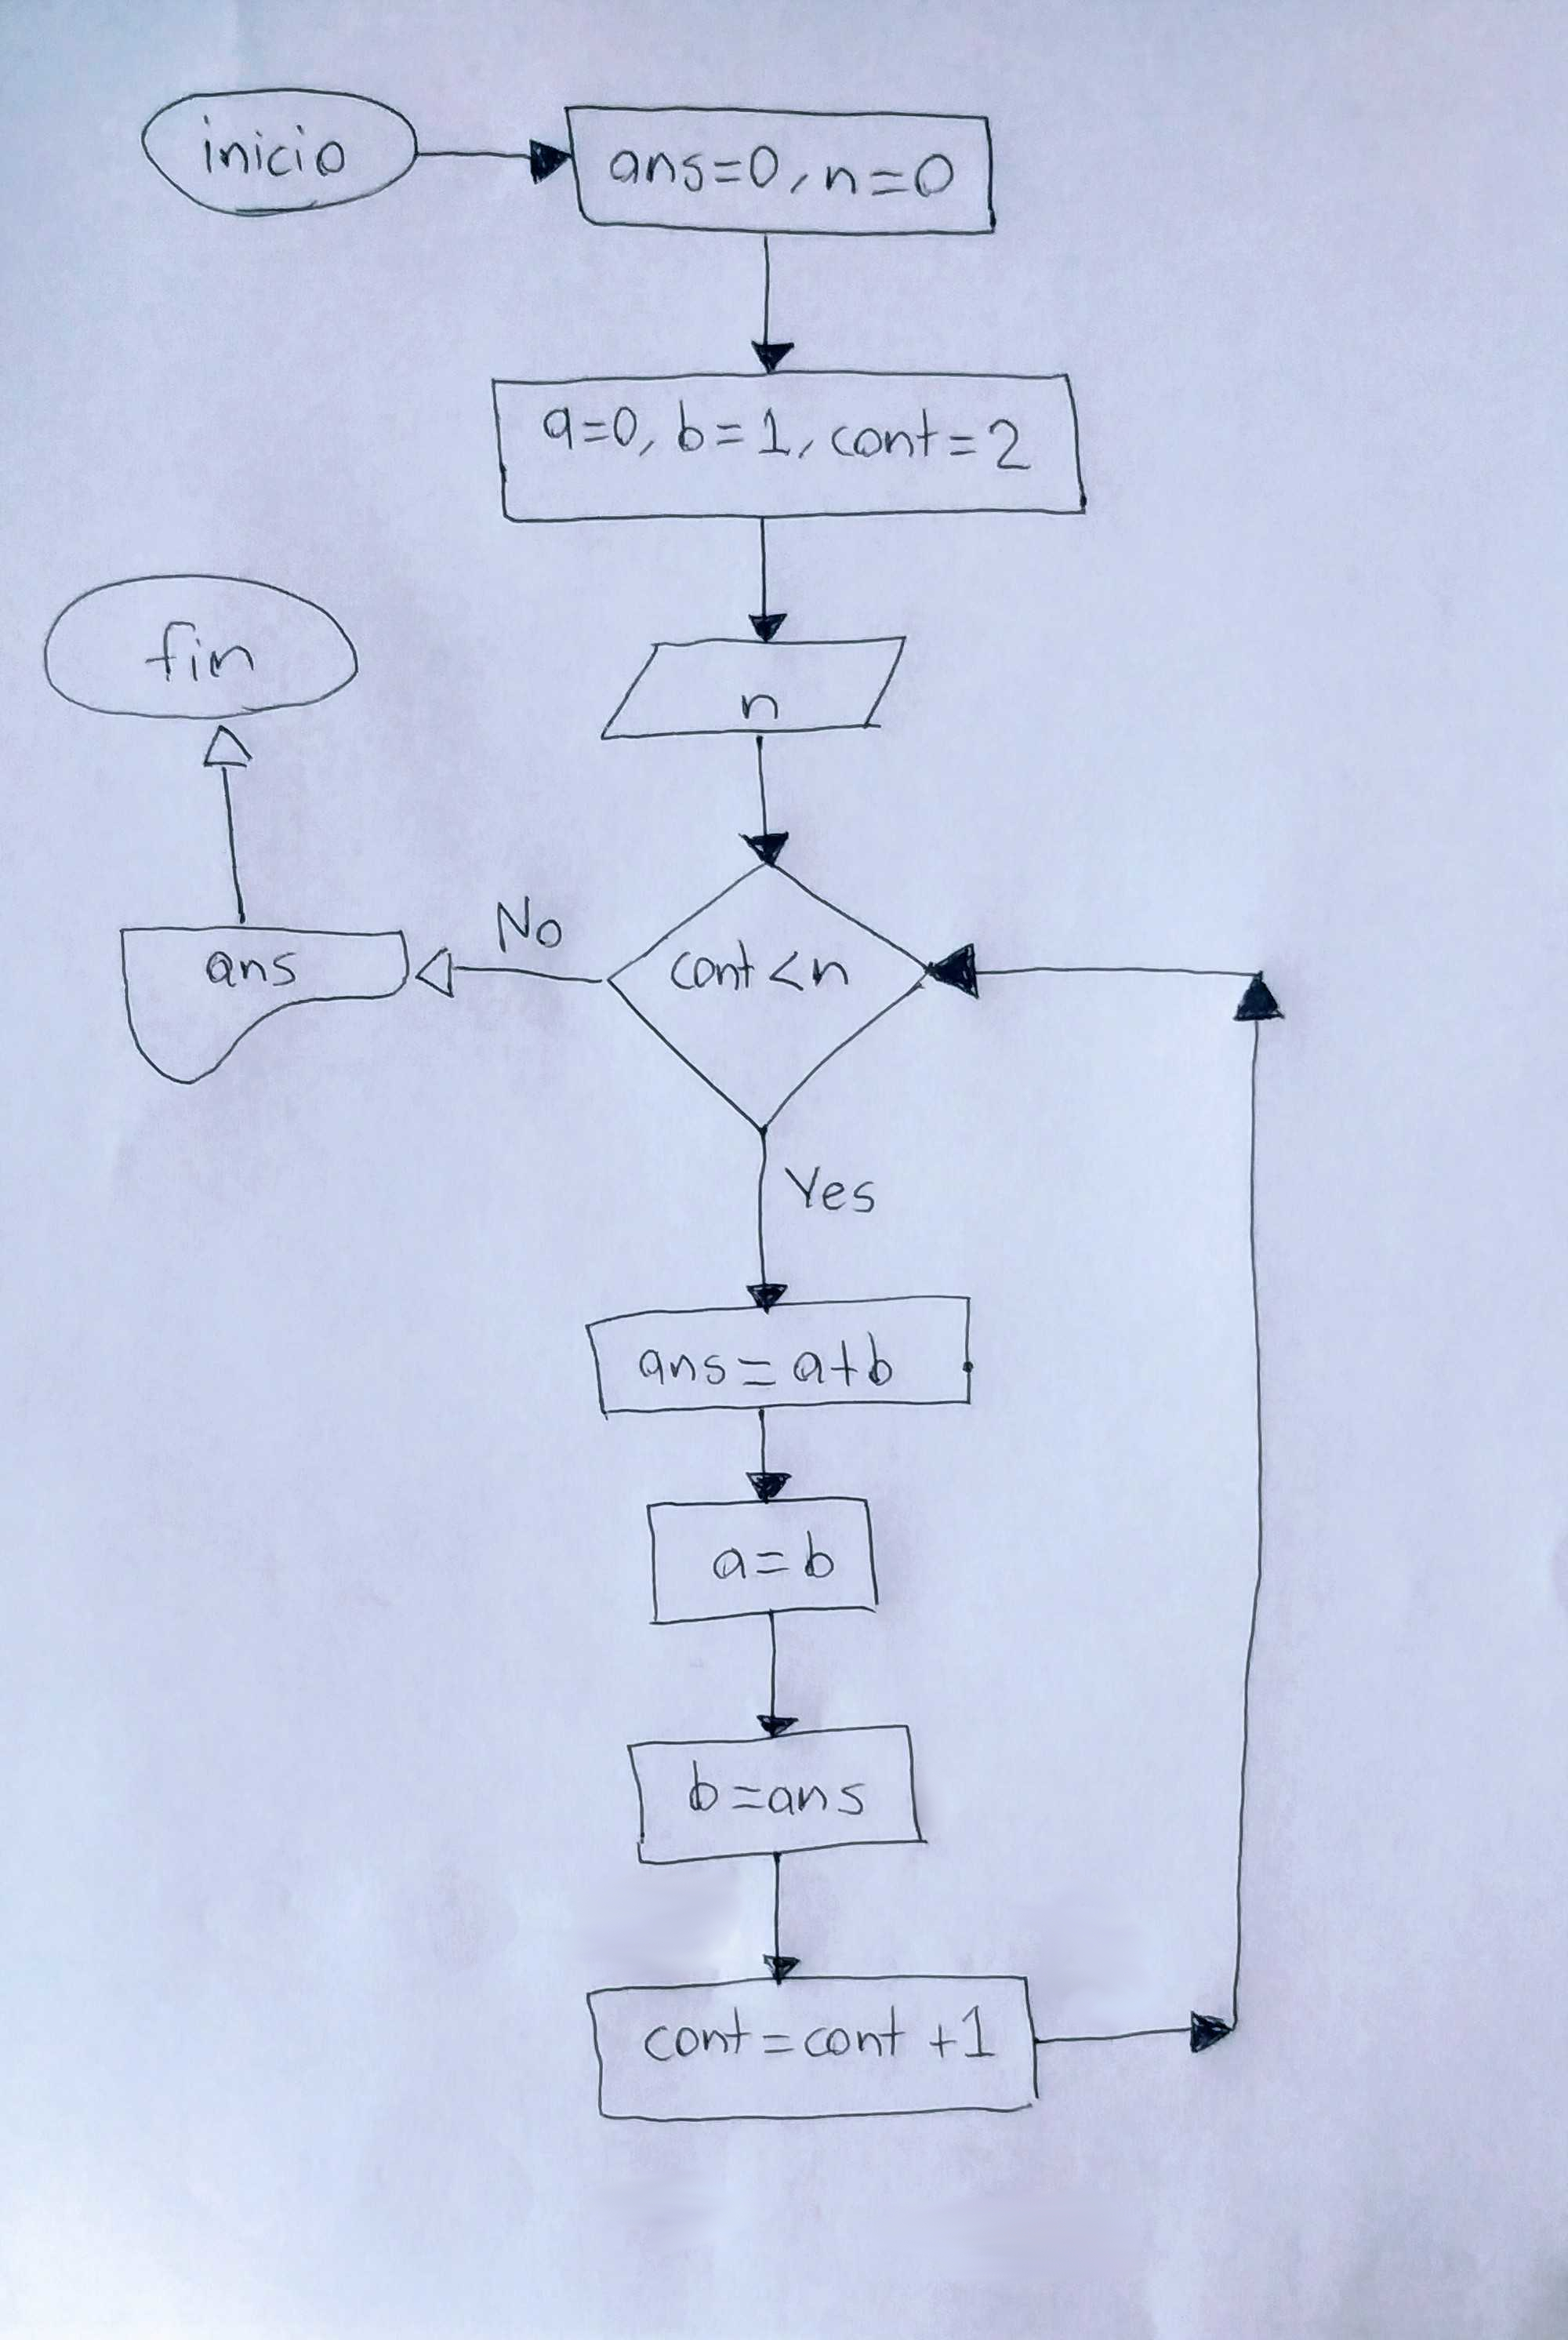 inicio
ans=0, n=0
a=0, b=1, cont=2
n
cont<n
No
ans
fin
Yes
ans=a+b
a=b
b=ans
cont=cont+1